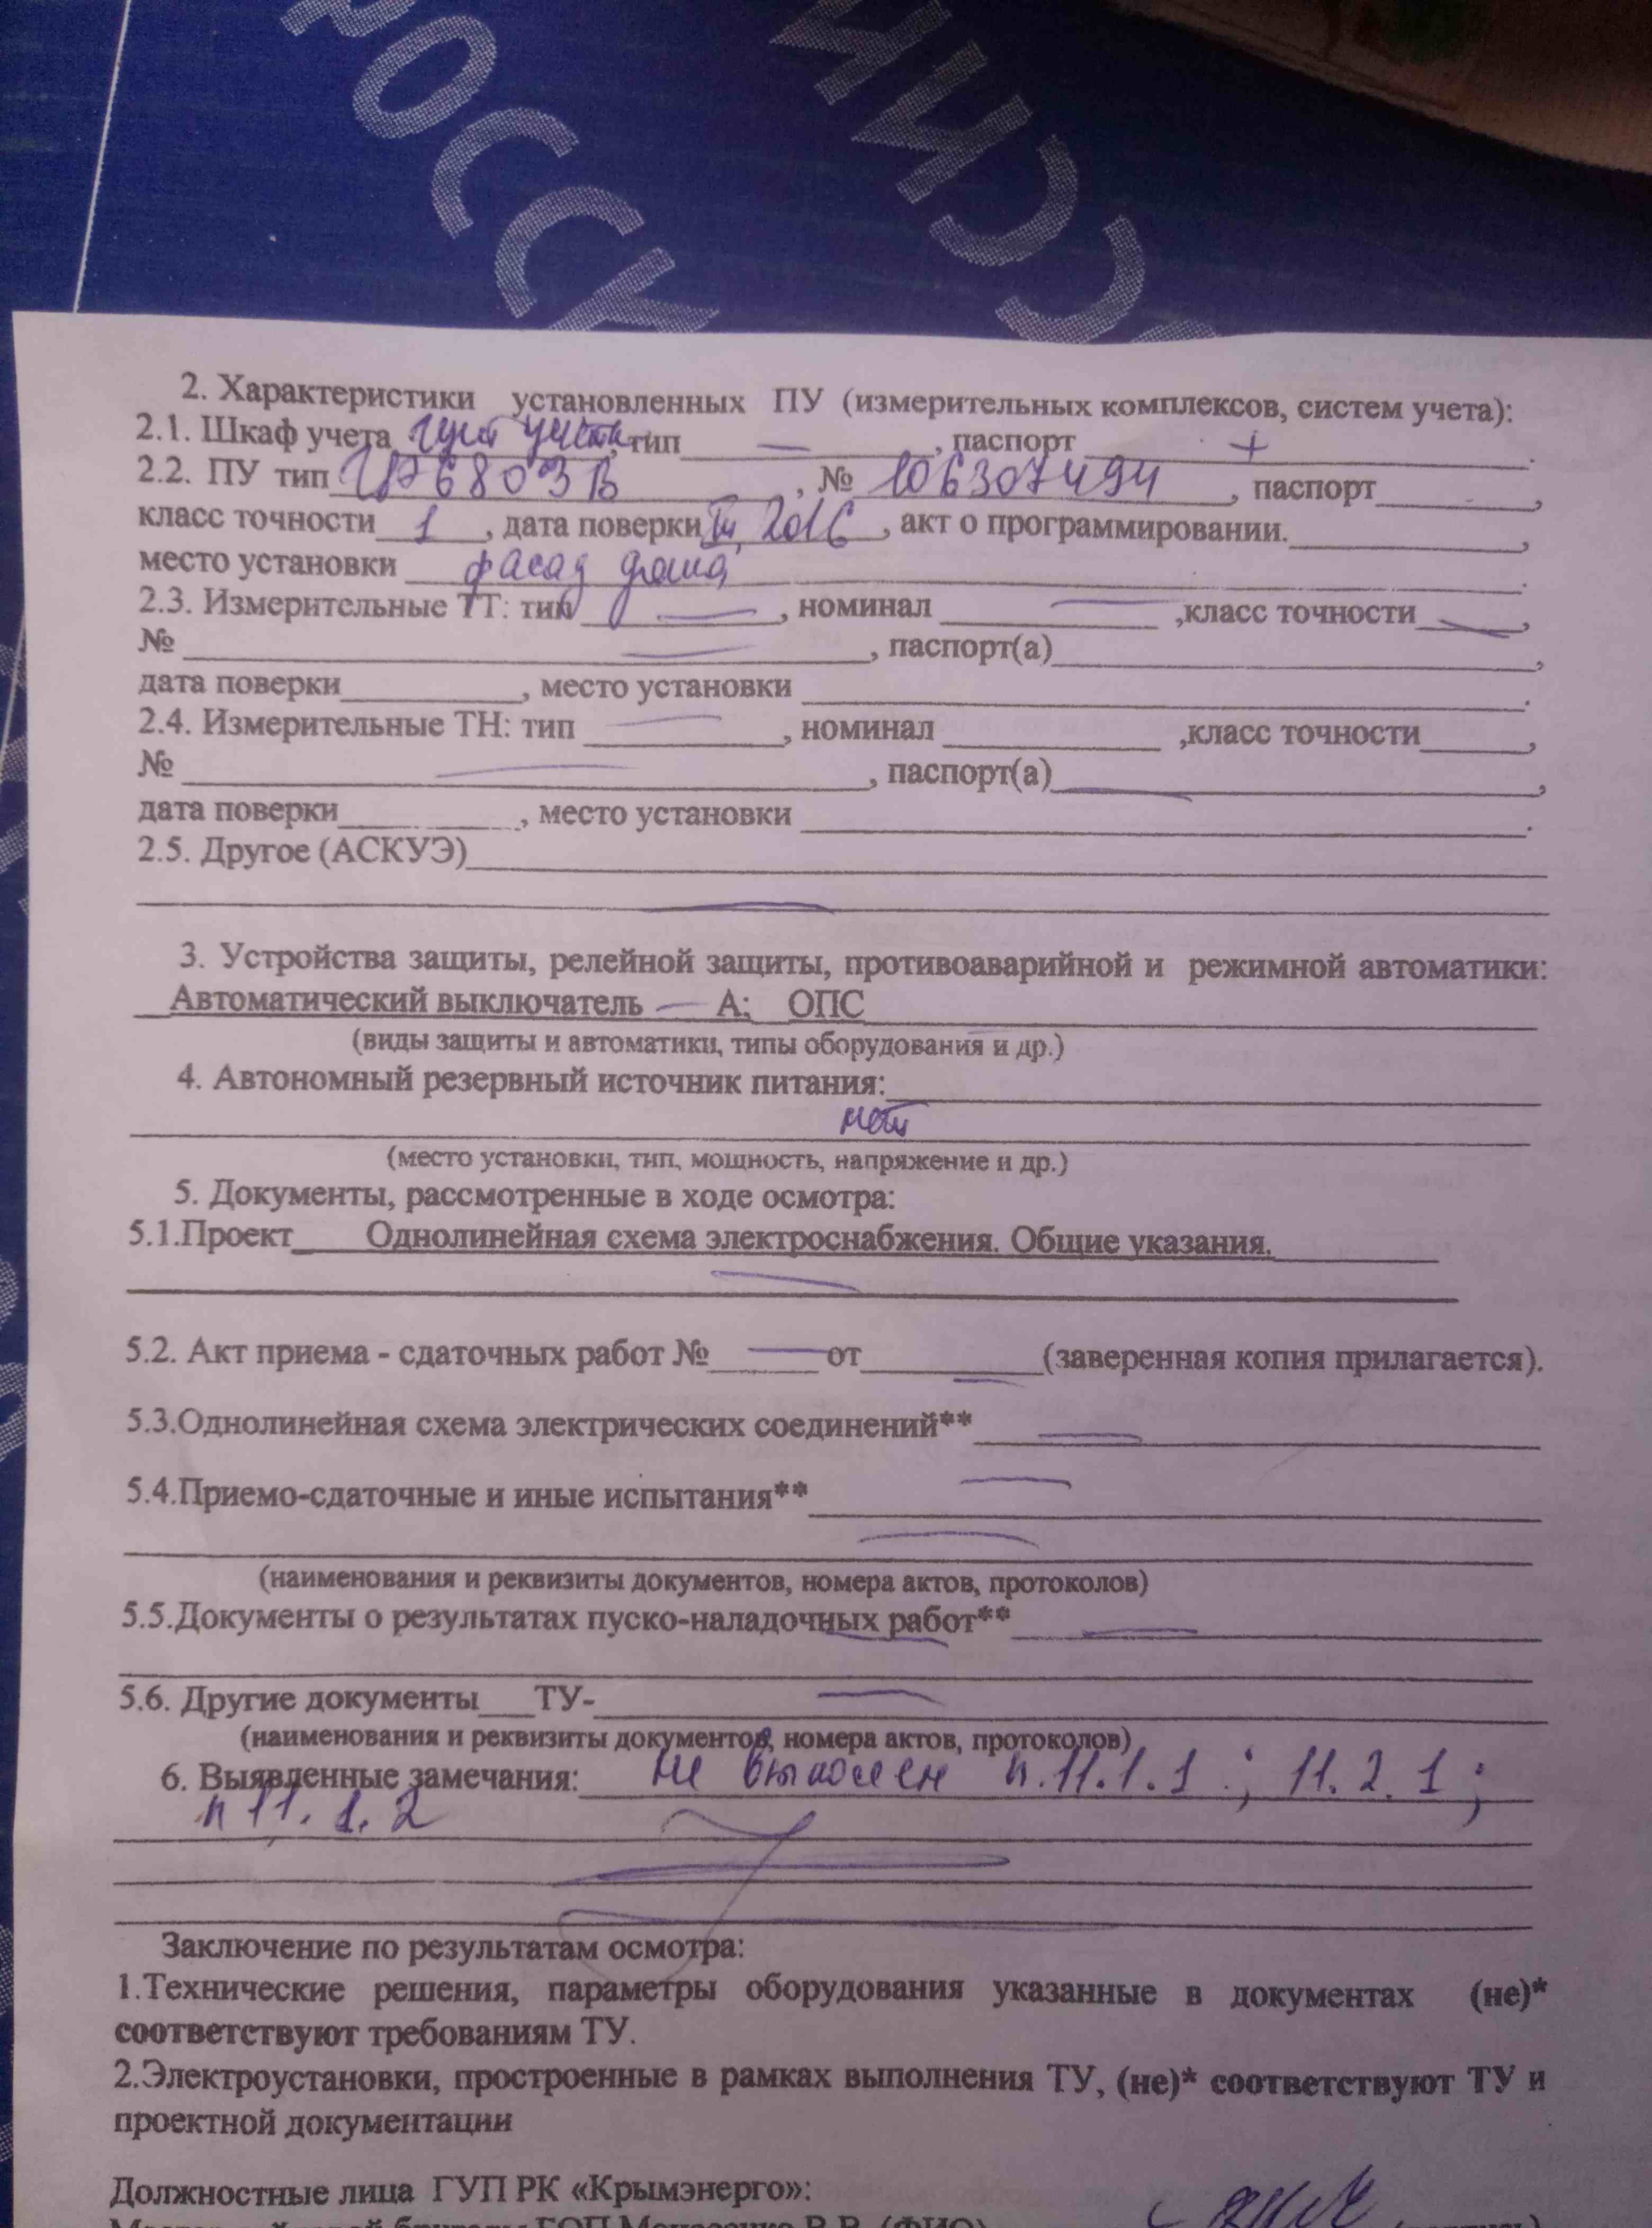 РОССИ
2. Характеристики установленных ПУ (измерительных комплексов, систем учета):
2.1. Шкаф учета щит учета, тип — , паспорт +.
2.2. ПУ тип ЦЭ6803В, № 106307494, паспорт ,
класс точности 1, дата поверки 2016, акт о программировании. ,
место установки фасад дома.
2.3. Измерительные ТТ: тип — , номинал — ,класс точности — ,
№ — , паспорт(а) ,
дата поверки , место установки .
2.4. Измерительные ТН: тип — , номинал ,класс точности ,
№ — , паспорт(а) — ,
дата поверки , место установки .
2.5. Другое (АСКУЭ)
—
3. Устройства защиты, релейной защиты, противоаварийной и режимной автоматики:
Автоматический выключатель — А; ОПС
(виды защиты и автоматики, типы оборудования и др.)
4. Автономный резервный источник питания:
нет
(место установки, тип, мощность, напряжение и др.)
5. Документы, рассмотренные в ходе осмотра:
5.1.Проект Однолинейная схема электроснабжения. Общие указания.
—
5.2. Акт приема - сдаточных работ № — от — (заверенная копия прилагается).
5.3.Однолинейная схема электрических соединений** —
5.4.Приемо-сдаточные и иные испытания** —
—
(наименования и реквизиты документов, номера актов, протоколов)
5.5.Документы о результатах пуско-наладочных работ** —
5.6. Другие документы ТУ- —
(наименования и реквизиты документов, номера актов, протоколов)
6. Выявленные замечания: не выполнен п.11.1.1 ; 11.2.1 ;
п 11.1.2
Заключение по результатам осмотра:
1.Технические решения, параметры оборудования указанные в документах (не)*
соответствуют требованиям ТУ.
2.Электроустановки, простроенные в рамках выполнения ТУ, (не)* соответствуют ТУ и
проектной документации
Должностные лица ГУП РК «Крымэнерго»: